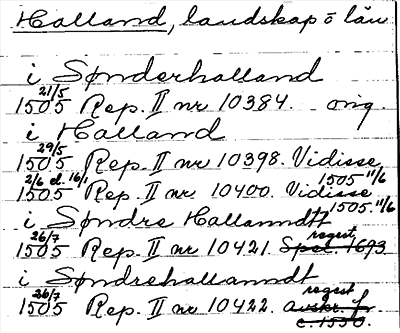 Halland, landskap o län
i Sønderhalland
21/5
1505 Rep. II nr 10384. orig.
i Halland
29/5
1505 Rep. II nr 10398. Vidisse
1505 11/6
2/6 el. 16/1
1505 Rep. II nr 10400. Vidisse
1505. 11/6
i Søndre Hallanndtt
26/7 regest
1505 Rep. II nr 10421. Spec. 1693
i Søndrehallanndt
26/7 regest
1505 Rep. II nr 10422. avskr. fr.
c. 1550.